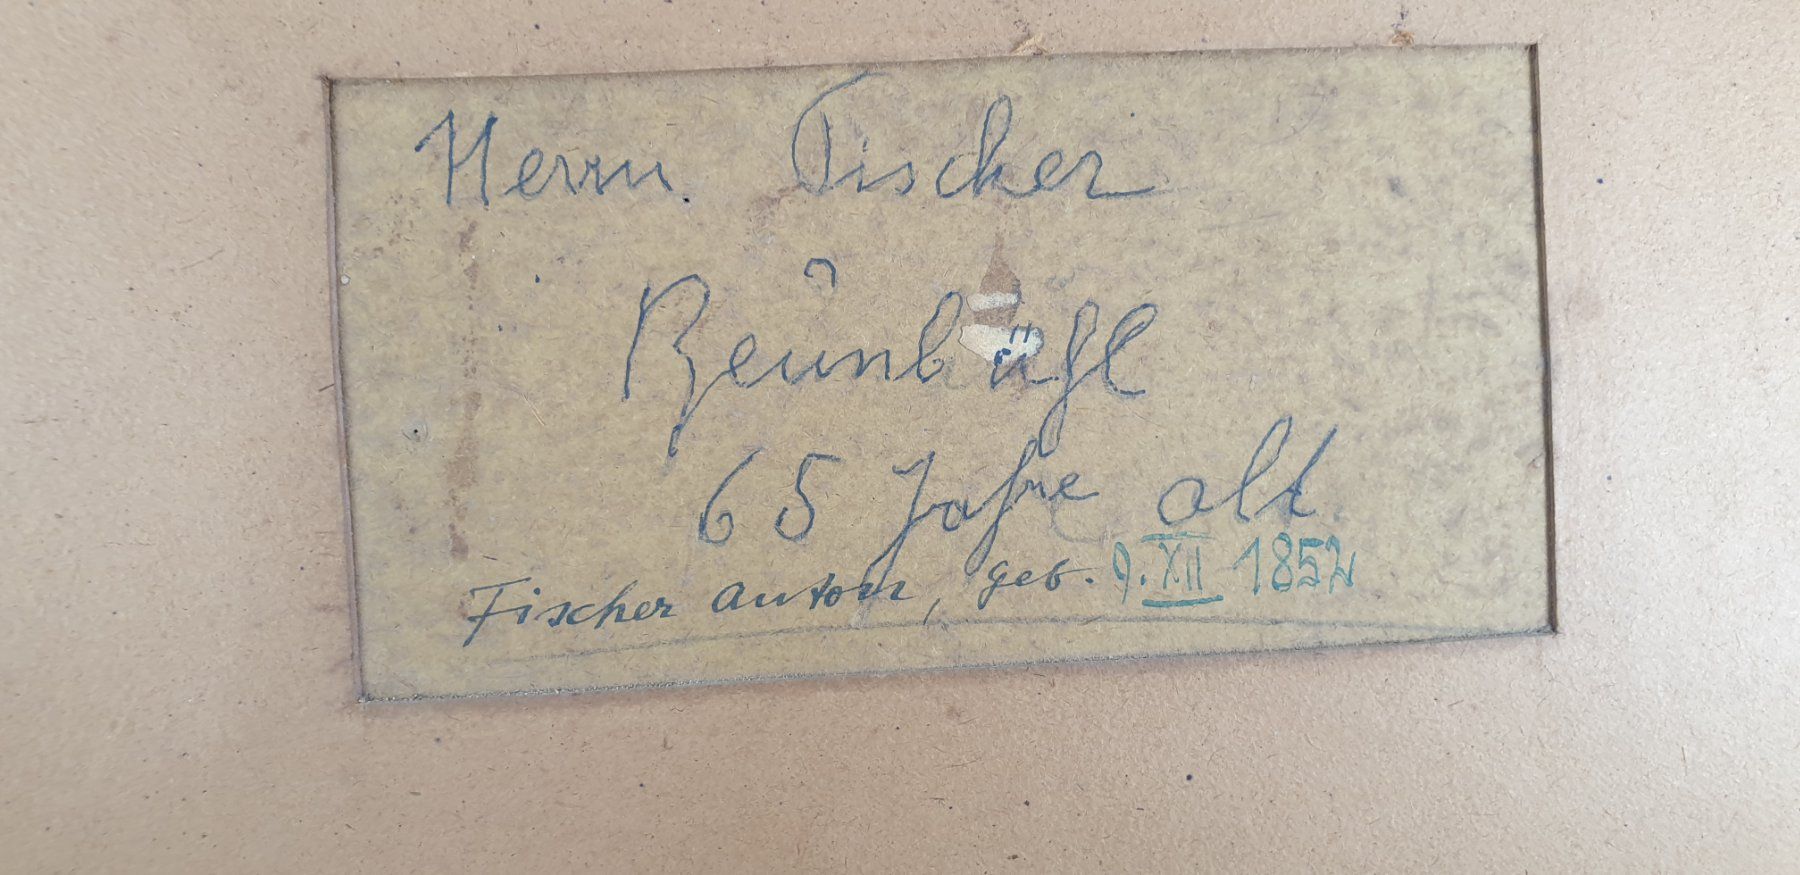 Herrn Fischer
65 Jahre alt
Fischer Anton, geb. 9. XII 1852